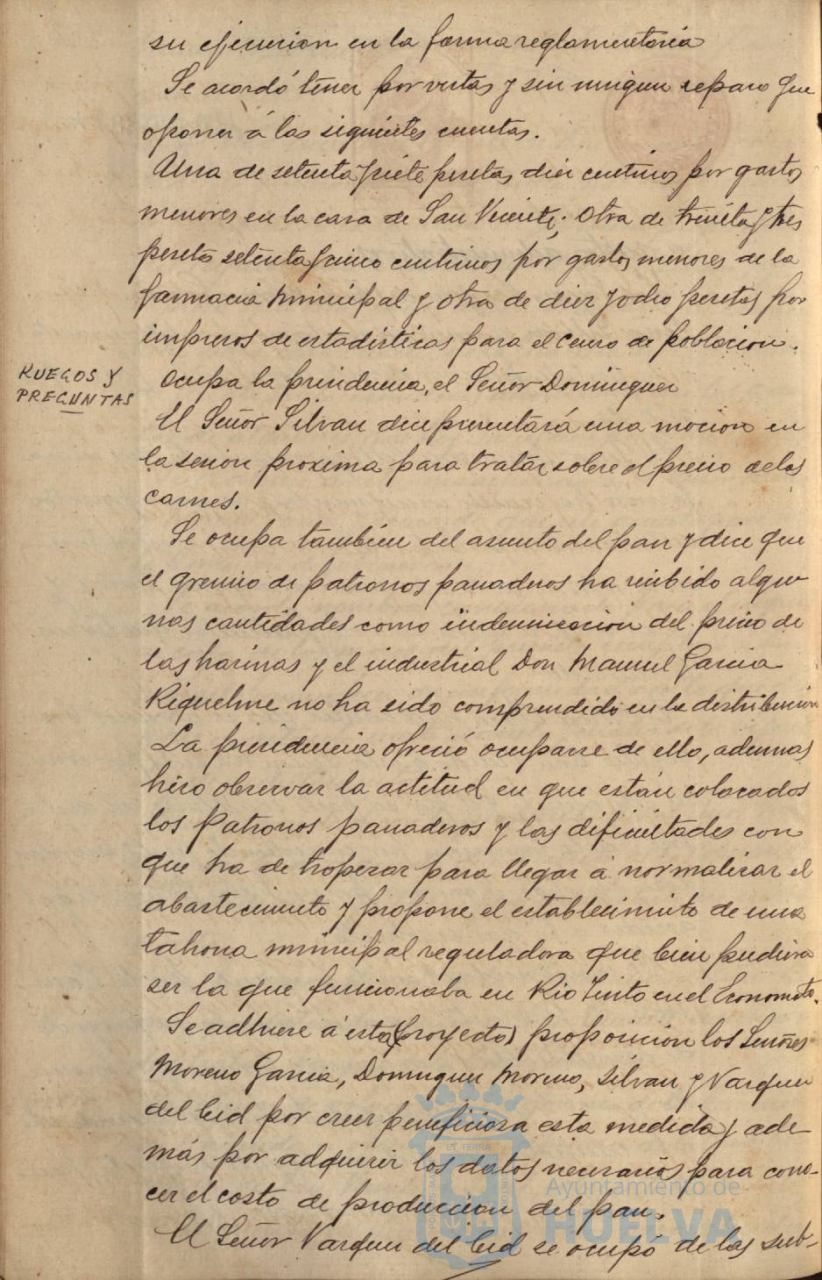 su ejecucion en la forma reglamentaria
Se acordó tener por vistas y sin ningun reparo que
oponer á las siguientes cuentas.
Una de setenta y siete pesetas diez centimos por gastos
menores en la casa de San Vicente; otra de treinta y tres
pesetas setenta y cinco centimos por gastos menores de la
farmacia Municipal y otra de diez y ocho pesetas por
impresos de estadisticas para el Censo de poblacion.
RUEGOS Y
PREGUNTAS
Ocupa la presidencia, el Señor Dominguez
El Señor Silvan dice presentará una mocion en
la sesion proxima para tratar sobre el precio de las
carnes.
Se ocupa tambien del asunto del pan y dice que
el gremio de patronos panaderos ha recibido algu
nas cantidades como indemnizacion del precio de
las harinas y el industrial Don Manuel Garcia
Riquelme no ha sido comprendido en la distribucion
La presidencia ofreció ocuparse de ello, ademas
hizo observar la actitud en que están colocados
los Patronos panaderos y las dificultades con
que ha de tropezar para llegar á normalizar el
abastecimiento y propone el establecimiento de una
tahona municipal reguladora que bien pudiera
ser la que funcionaba en Rio Tinto en el Economato.
Se adhiere á esta (proyecto) proposición los Señores
Moreno Garcia, Dominguez Moreno, Silvan y Vazquez
del Cid por creer beneficiosa esta medida y ade
más por adquirir los datos necesarios para cono-
cer el costo de produccion del pan.
El Señor Vazquez del Cid se ocupó de las sub-
Ayuntamiento de
HUELVA